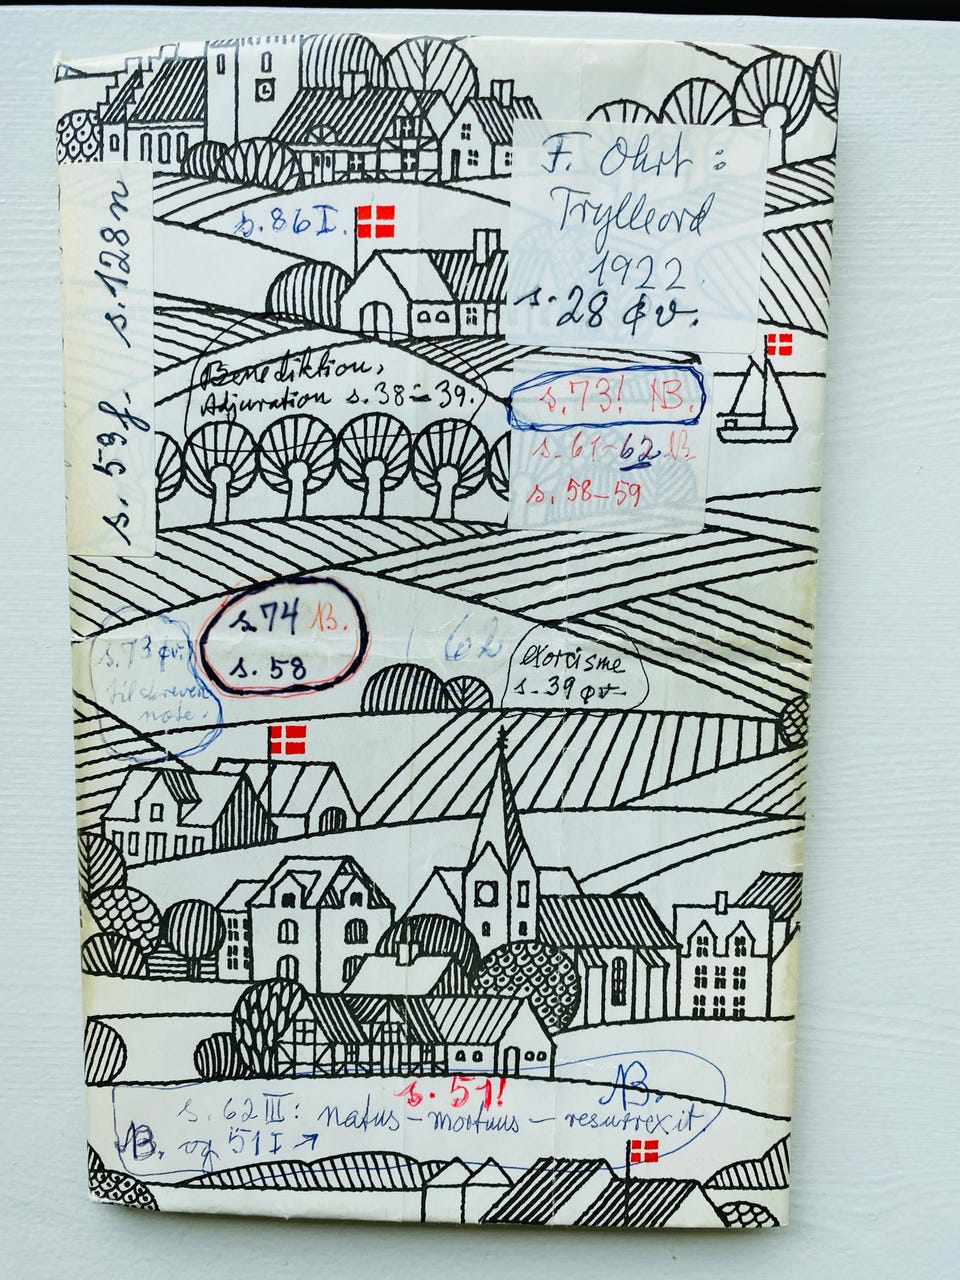 F. Ohrt :
Trylleord
1922.
s. 28 øv.
s. 86 I.
s. 53 f. s. 128 n
Benediktion,
Adjuration s. 38-39.
s. 73! NB.
s. 61-62 NB
s. 58-59
s. 74 NB.
s. 58
s. 73 øv.
tilskreven
note.
62
exorcisme
s. 39 øv.
s. 51!
NB.
s. 62 III: natus - mortuus - resurrexit
NB. og 51 I ↗